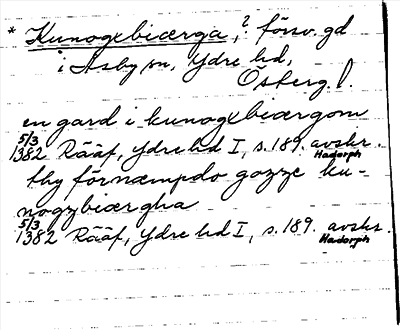 * Kunogxbiærga, ? försv. gd
i Asby sn, Ydre hd,
Österg l.
en gard i kunogxbiærgom
5/3 1382 Rääf, Ydre hd I, s. 189. avskr. Hadorph
thy förnæmpdo gozze ku-
nogzbiærgha
5/3 1382 Rääf, Ydre hd I, s. 189. avskr. Hadorph